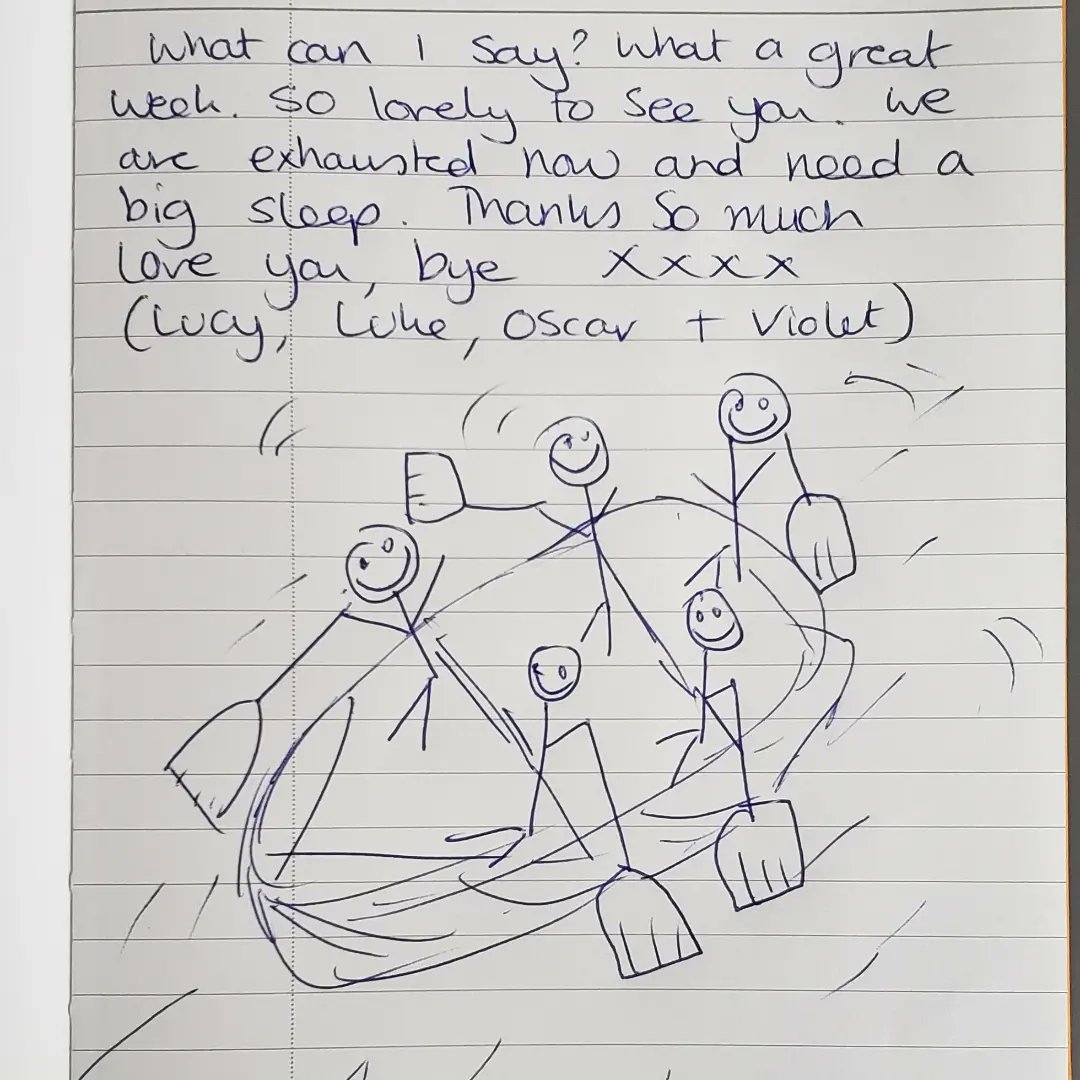 What can I say? What a great
week. So lovely to see you. We
are exhausted now and need a
big sleep. Thanks so much
love you, bye xxxx
(Lucy, Luke, Oscar + Violet)